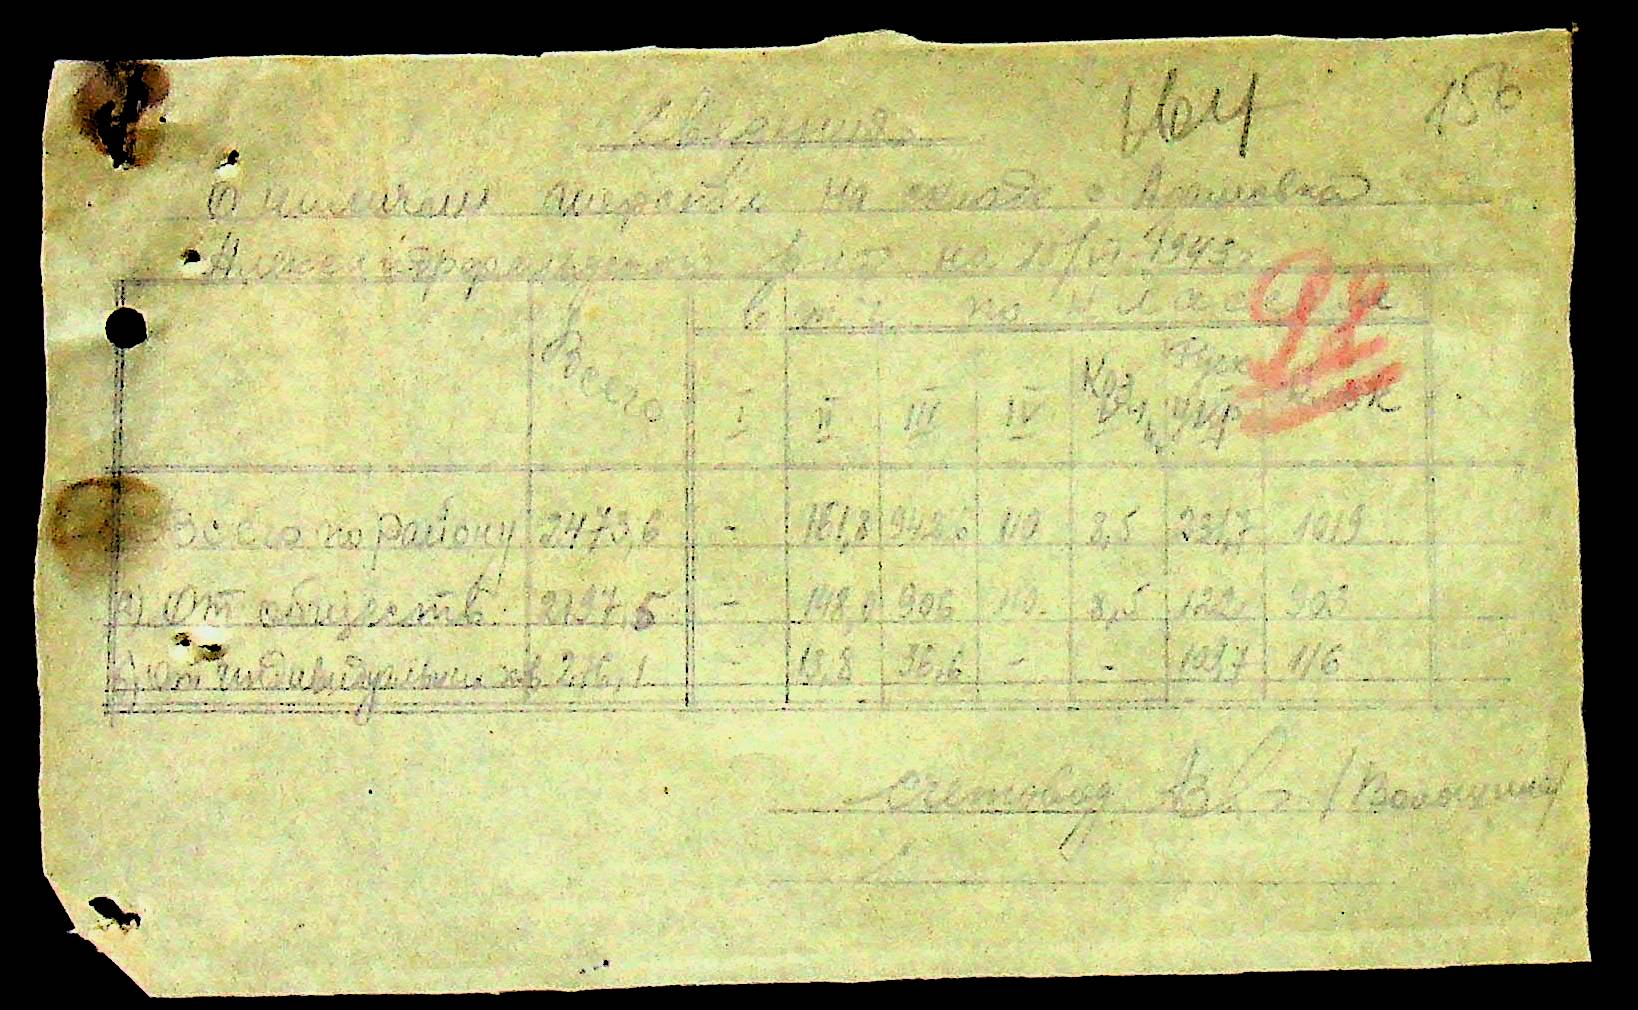 164 156
Сведения
О наличии шерсти на складе с.
на 10/VI-1943г.
92
Всего в т.ч. по классам
I II III IV
Всего по району 2473,6 - 161,8 942,6 110 8,5 231,7 1019
а) От обществ. 2197,5 - 148,0 906 110 8,5 122, 903
б) От индивидуальных хоз. 276,1 - 13,8 36,6 - - 109,7 116
Счетовод /Волошина/